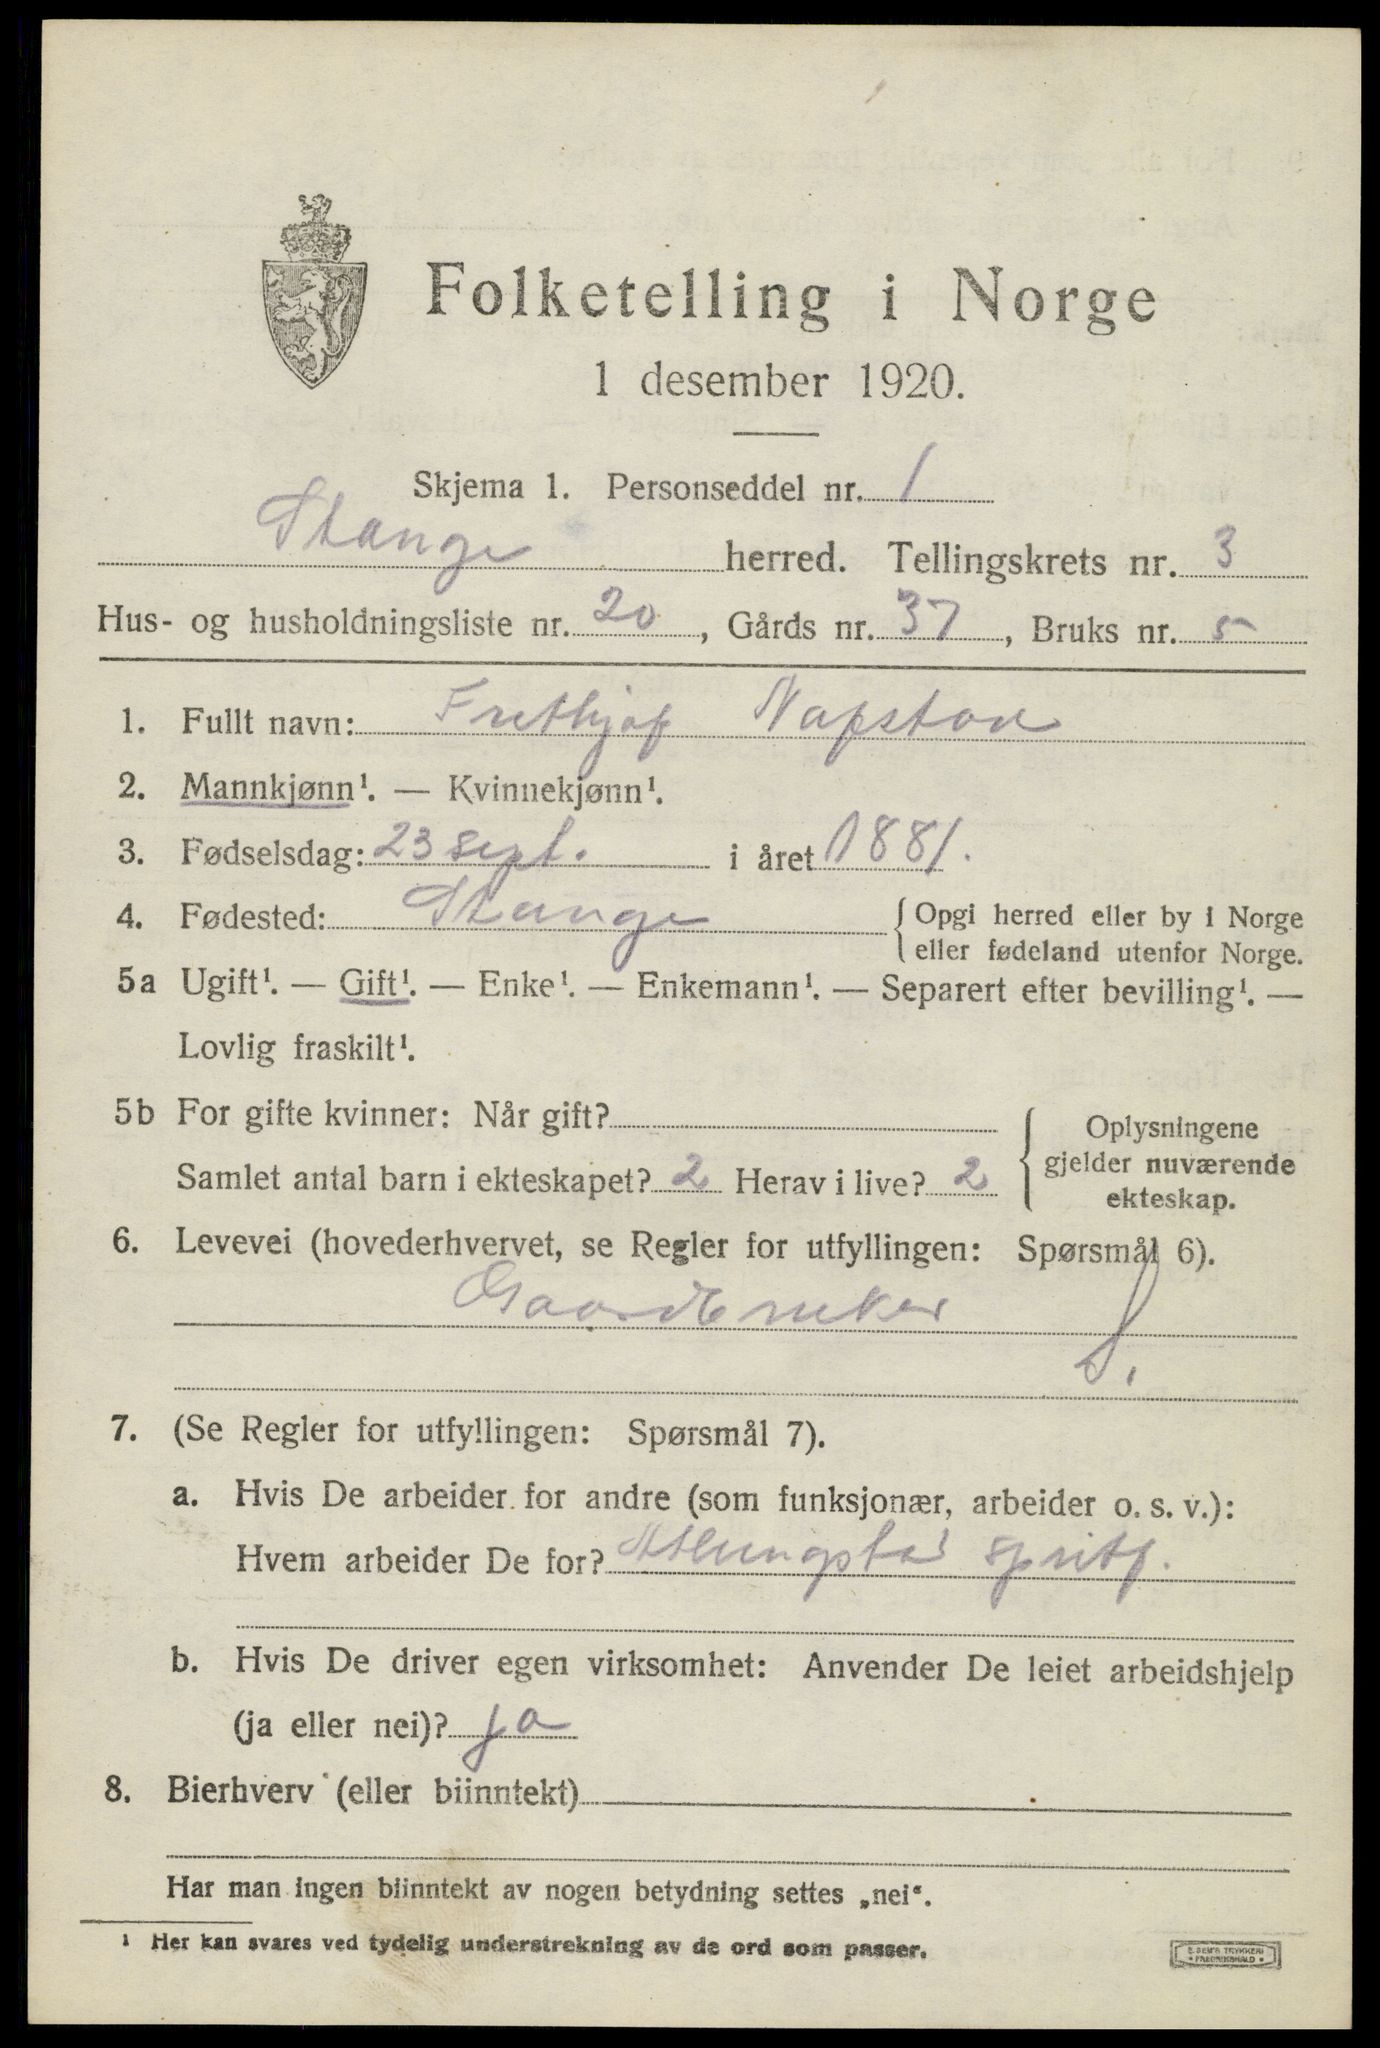 Folketelling i Norge
1 desember 1920.
Skjema 1. Personseddel nr. 1
Stange herred. Tellingskrets nr. 3
Hus- og husholdningsliste nr. 20, Gårds nr. 37, Bruks nr. 5
1. Fullt navn: Frethjof Nafstad
2. Mannkjønn¹. — Kvinnekjønn¹.
3. Fødselsdag: 23 sept. i året 1881.
4. Fødested: Stange
{ Opgi herred eller by i Norge
eller fødeland utenfor Norge.
5a Ugift¹. — Gift¹. — Enke¹. — Enkemann¹. — Separert efter bevilling¹. —
Lovlig fraskilt¹.
5b For gifte kvinner: Når gift?
Samlet antal barn i ekteskapet? 2 Herav i live? 2
{ Oplysningene
gjelder nuværende
ekteskap.
6. Levevei (hovederhvervet, se Regler for utfyllingen: Spørsmål 6).
Gaardbruker
S.
7. (Se Regler for utfyllingen: Spørsmål 7).
a. Hvis De arbeider for andre (som funksjonær, arbeider o. s. v.):
Hvem arbeider De for? Atlungstad spritf.
b. Hvis De driver egen virksomhet: Anvender De leiet arbeidshjelp
(ja eller nei)? ja
8. Bierhverv (eller biinntekt)
Har man ingen biinntekt av nogen betydning settes „nei“.
¹ Her kan svares ved tydelig understrekning av de ord som passer.
TRYKKERI
FREDRIKSHALD